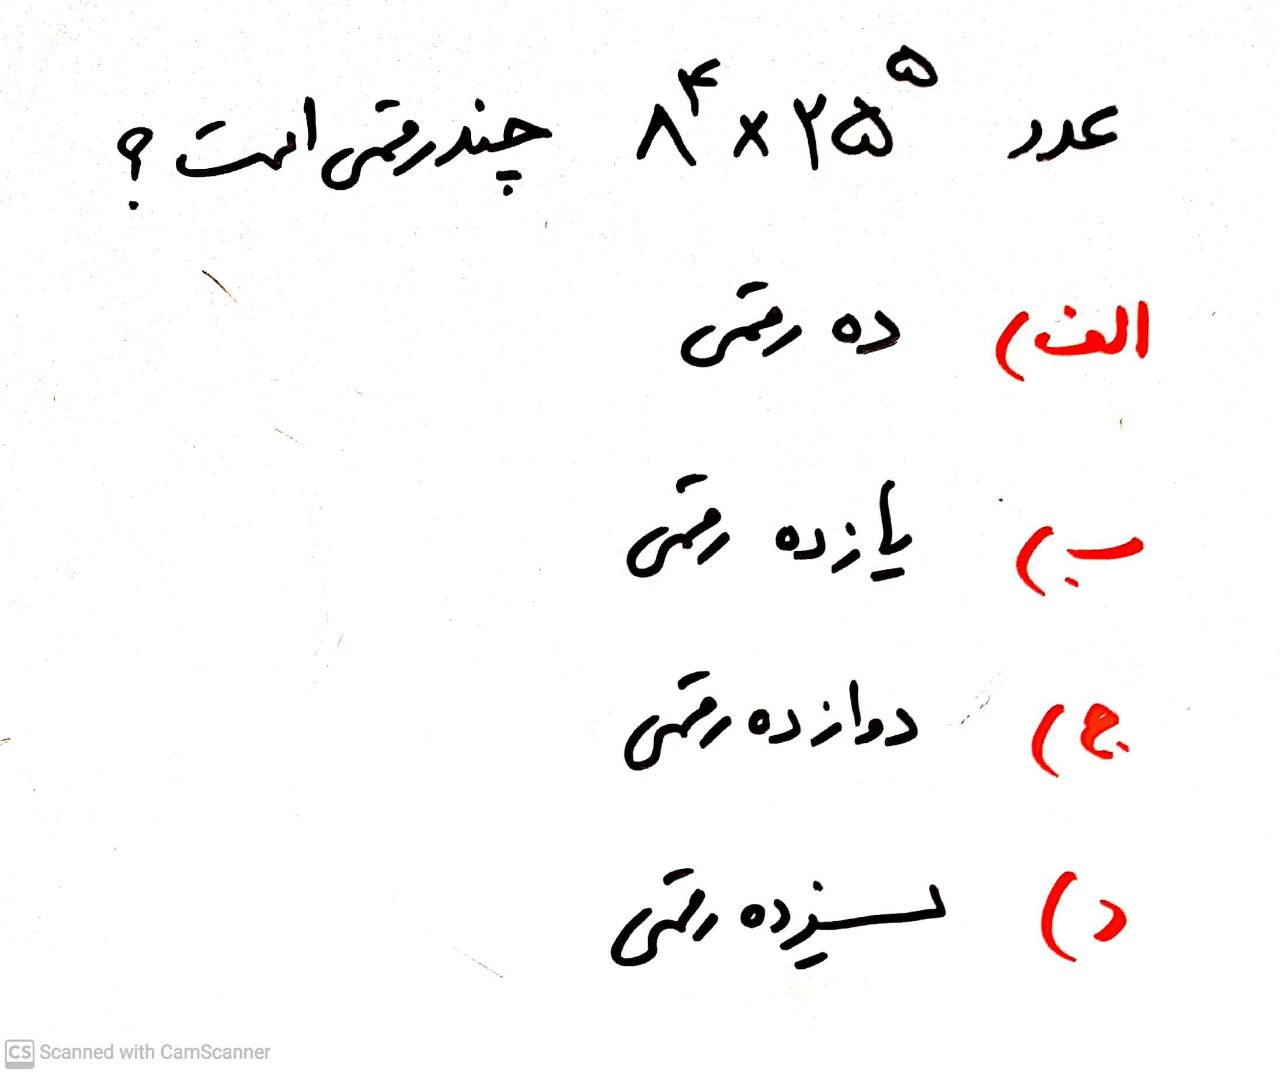 عدد ۸^۴ × ۲۵^۵ چند رقمی است ؟
الف) ده رقمی
ب) یازده رقمی
ج) دوازده رقمی
د) سیزده رقمی
CS Scanned with CamScanner